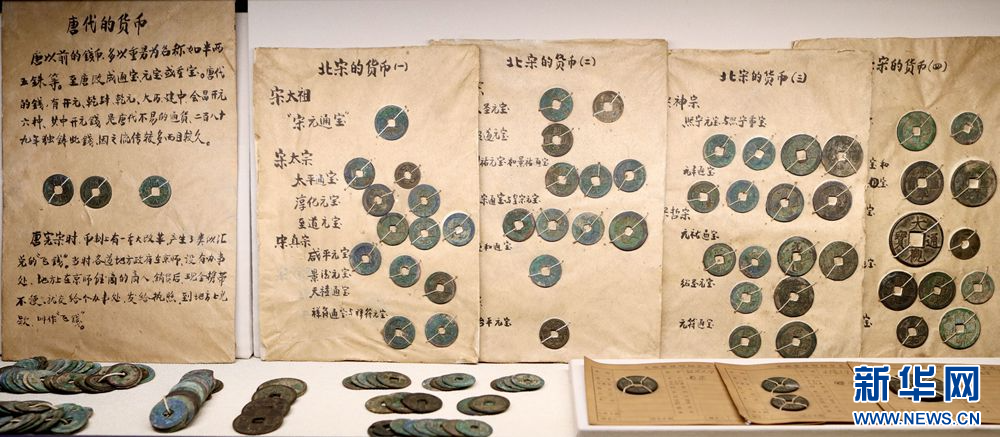 唐代的货币
唐以前的钱币,多以重量为名称,如半两
五铢等。至唐改成通宝,元宝或重宝。唐代
的钱,有开元,乾封,乾元,大历,建中,会昌开元
六种,其中开元钱是唐代不易的通货,二百八十
九年独铸此钱,因之流传较多而且较久。
唐宪宗时,币制上有一重大改革,产生了类似汇
兑的"飞钱"。当时各道地方政府在京师,设有办事
处,地方上在京师经商的商人,销货后,现金携带
不便,就交给个办事处,发给执照,到地方上兑
款,叫作"飞钱"。
北宋的货币(一)
宋太祖
"宋元通宝"
宋太宗
太平通宝
淳化元宝
至道元宝
宋真宗
咸平元宝
景德元宝
天禧通宝
祥符通宝与祥符元宝
北宋的货币(二)
圣元宝
道元宝
祐元宝和景祐通宝
宋通宝与皇宋元宝
和通宝
平元宝
北宋的货币(三)
神宗
熙宁元宝与熙宁重宝
元丰通宝
哲宗
元祐通宝
绍圣元宝
元符通宝
宋的货币(四)
宝和
宝
大
观
通
寶
新华网
WWW.NEWS.CN